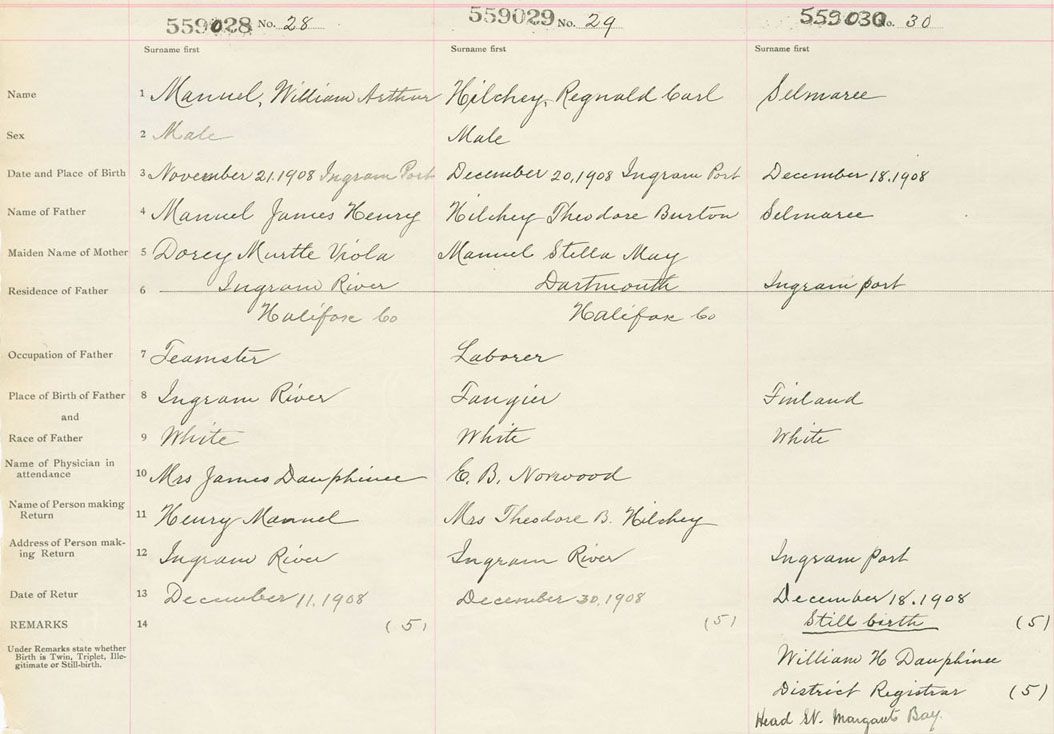 559028 No. 28 559029 No. 29 559030 No. 30
Surname first Surname first Surname first
Name 1 Manuel, William Arthur Hilchey, Regnald Carl Selmaree
Sex 2 Male Male
Date and Place of Birth 3 November 21.1908 Ingram Port December 20,1908 Ingram Port December 18.1908
Name of Father 4 Manuel James Henry Hilchey Theodore Burton Selmaree
Maiden Name of Mother 5 Dorey Murtle Viola Manuel Stella May
Residence of Father 6 Ingram River Dartmouth Ingram port
Halifax Co Halifax Co
Occupation of Father 7 Teamster Laborer
Place of Birth of Father 8 Ingram River Tangier Finland
and
Race of Father 9 White White White
Name of Physician in
attendance 10 Mrs James Dauphinee E. B. Norwood
Name of Person making
Return 11 Henry Manuel Mrs Theodore B. Hilchey
Address of Person mak-
ing Return 12 Ingram River Ingram River Ingram Port
Date of Retur 13 December 11.1908 December 30,1908 December 18.1908
REMARKS 14 (5) (5) Still birth (5)
Under Remarks state whether
Birth is Twin, Triplet, Ille-
gitimate or Still-birth.
William H Dauphinee
District Registrar (5)
Head St. Margarets Bay.